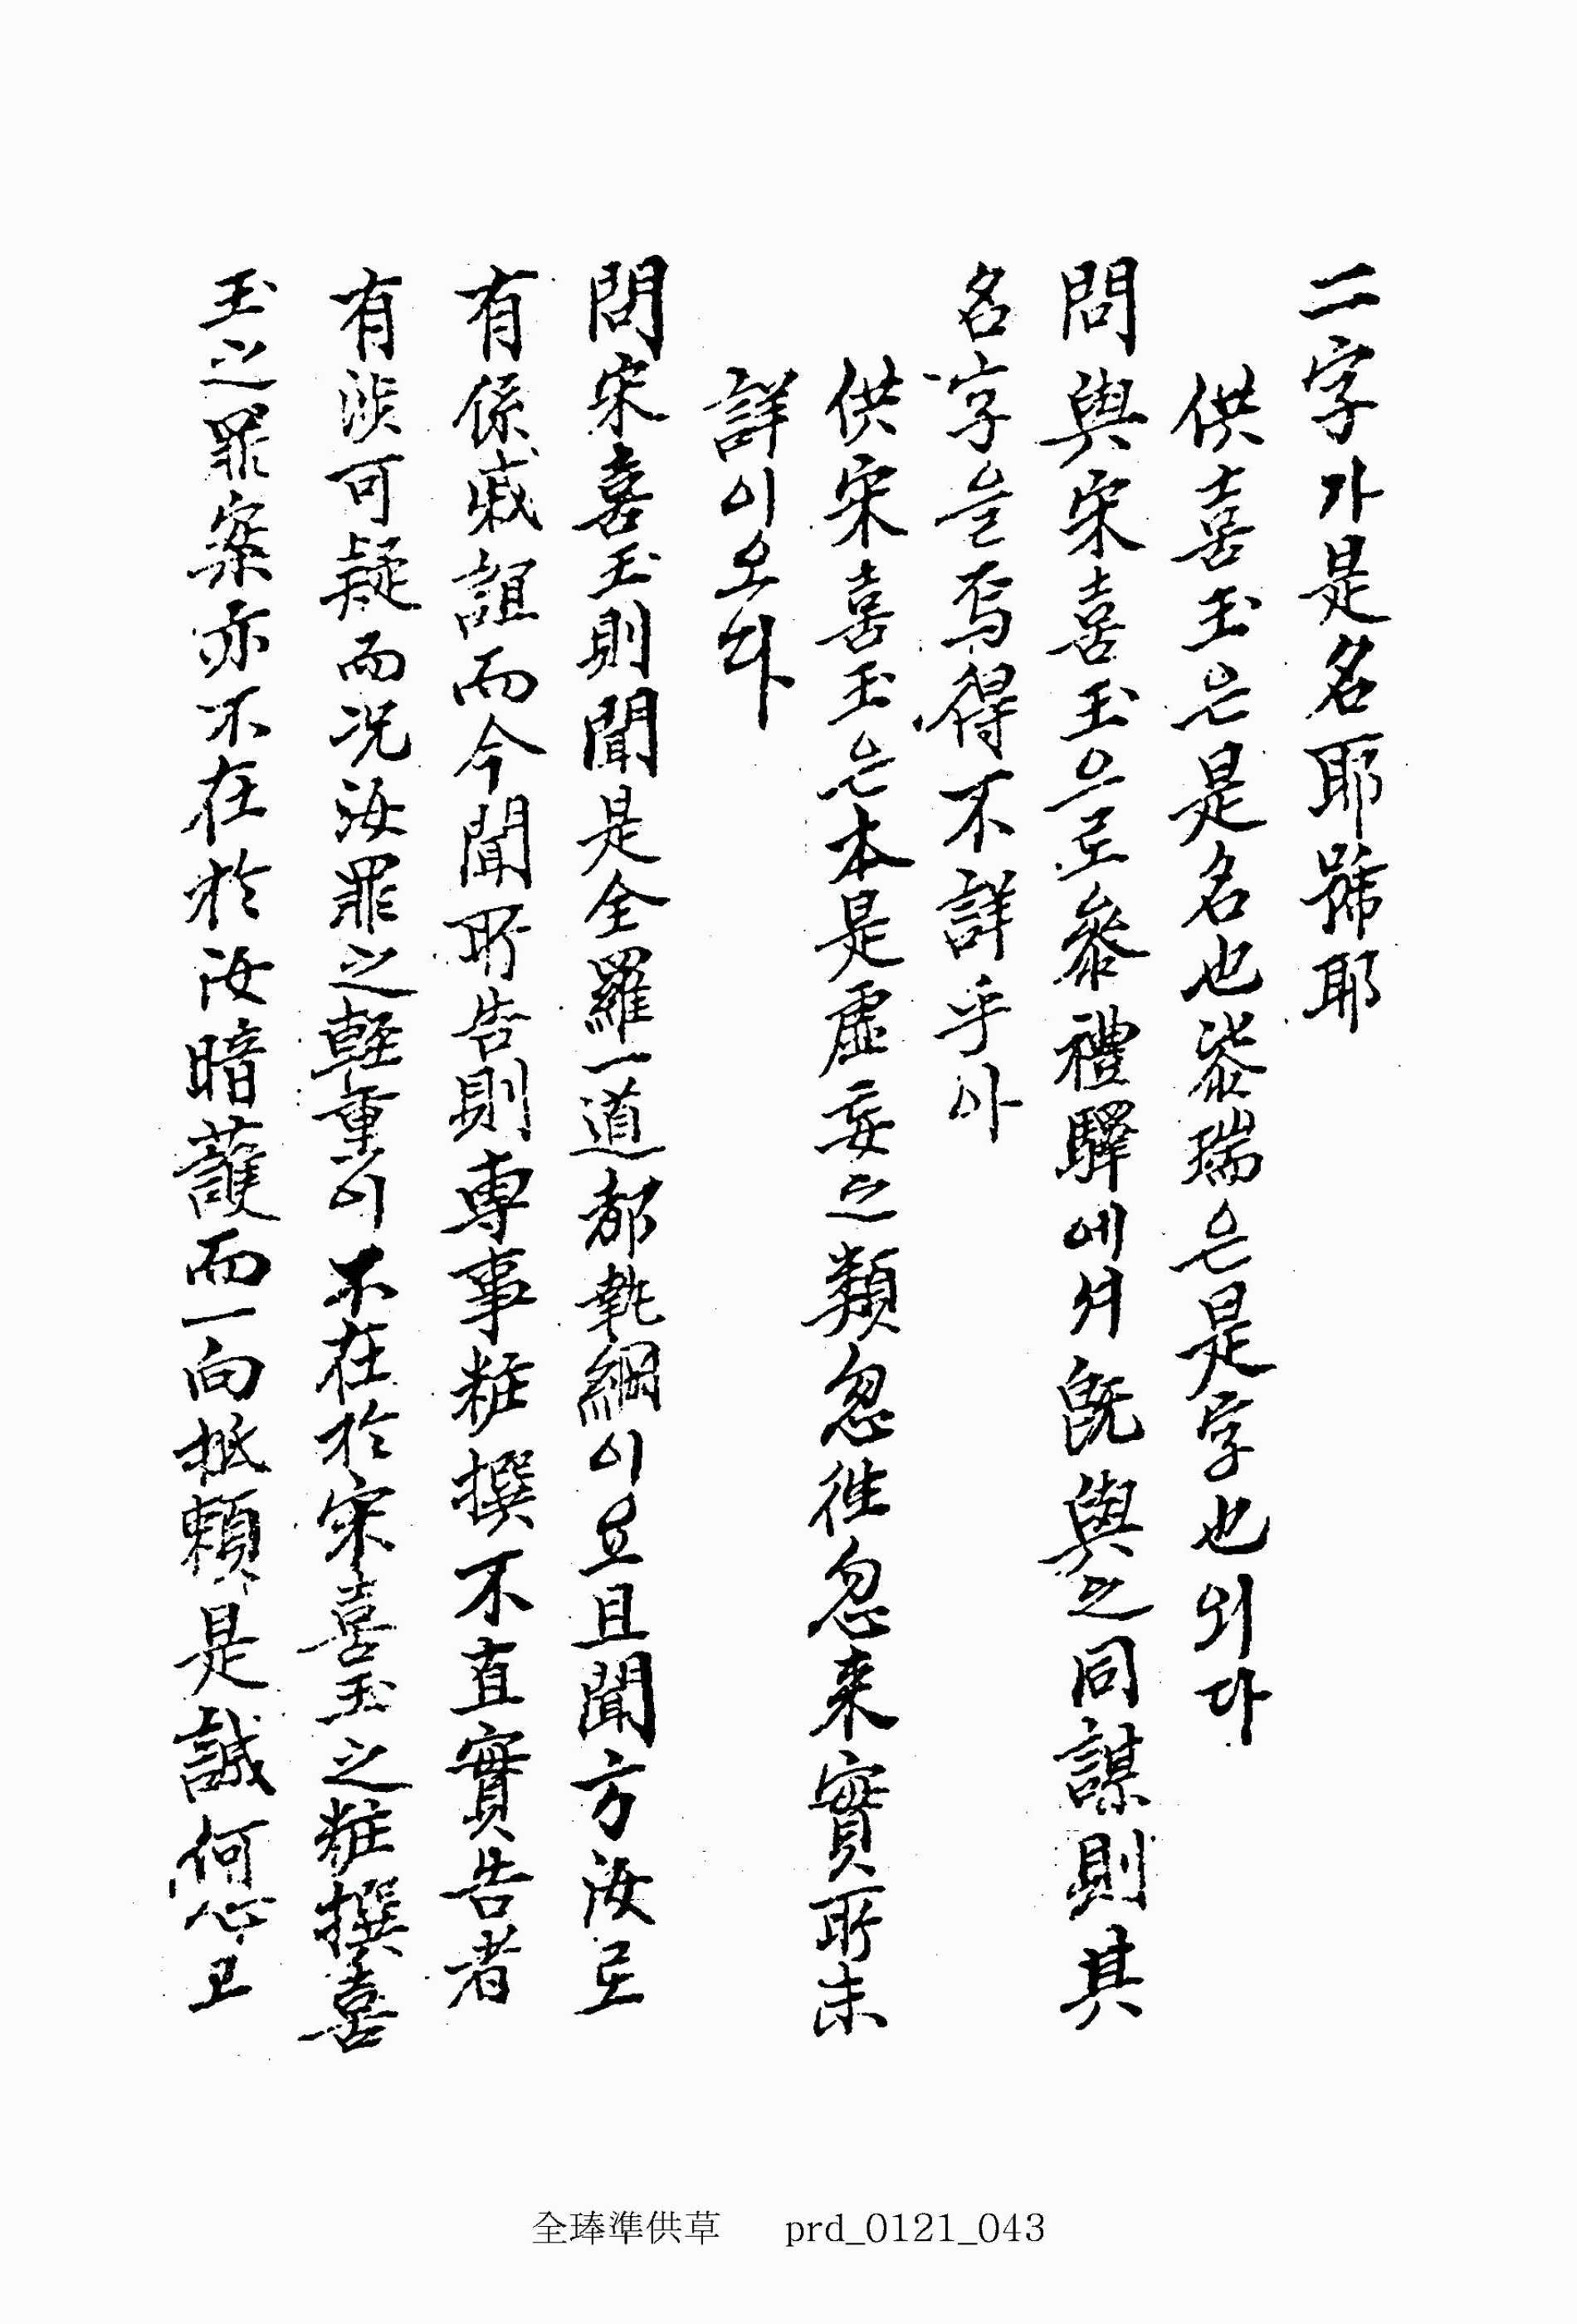 二字가是名耶號耶
供喜玉은是名也柒瑞은是字也외다
問與宋喜玉으로參禮驛에셔旣與之同謀則其
名字을焉得不詳乎아
供宋喜玉은本是虛妄之類忽往忽来實所未
詳이오다
問宋喜玉則聞是全羅一道都執綱이요且聞方汝로
有係戚誼而今聞所告則專事粧撰不直實告者
有涉可疑而况汝罪之輕重이不在於宋喜玉之粧撰喜
玉之罪案亦不在於汝暗護而一向抵賴是誠何心고
全琫準供草 prd_0121_043